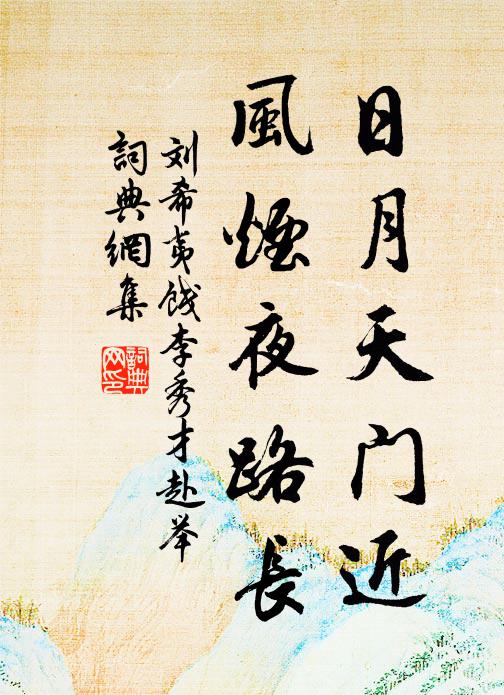 日月天门近
風煙夜路長
刘希夷餞李秀才赴举
詞典網集
詞典
网印